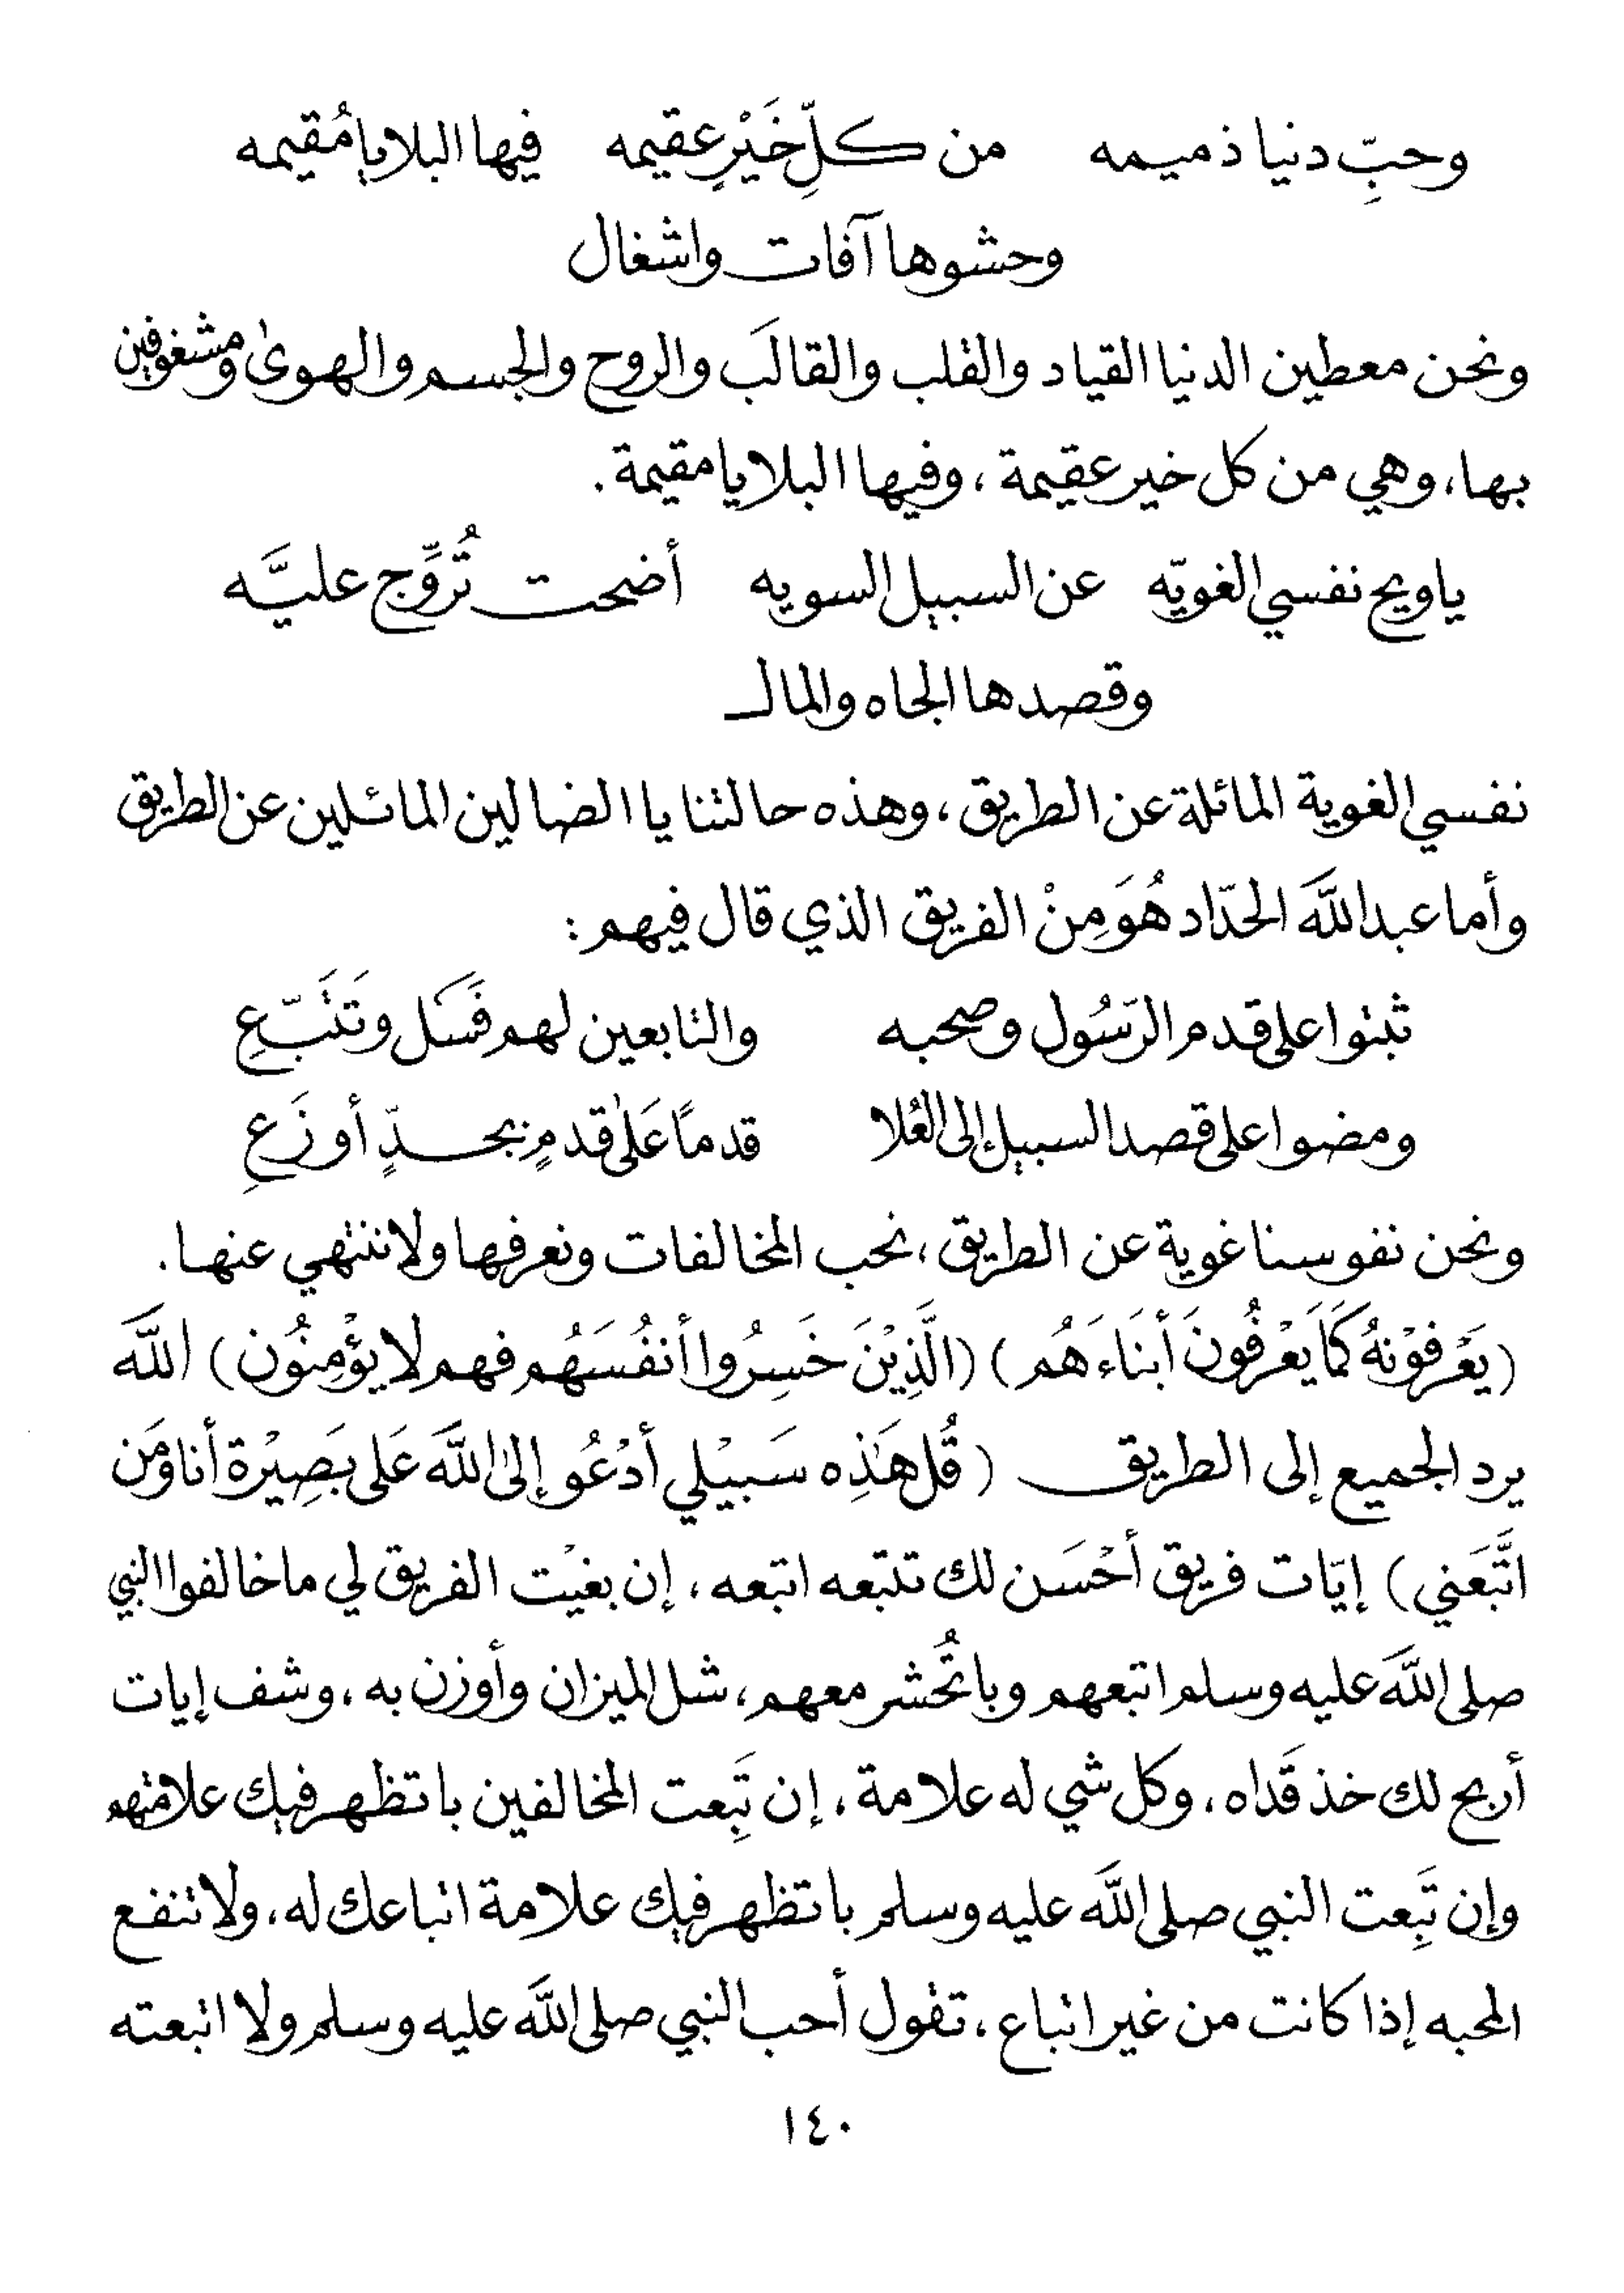 وحبِّ دنيا ذميمه من كلِّ خَيْرٍ عقيمه فيها البلايا مُقيمه
وحشوها آفات واشغال
ونحن معطين الدنيا القياد والقلب والقالَب والروح والجسم والهوىٰ ومشغوفين
بها، وهي من كل خير عقيمة ، وفيها البلايا مقيمة .
ياويح نفسي الغويّه عن السبيل السويه أضحت تُروِّج عليَّه
وقصدها الجاه والمال
نفسي الغوية المائلة عن الطريق ، وهذه حالتنا يا الضالين المائلين عن الطريق
وأما عبدالله الحدّاد هُوَ مِنْ الفريق الذي قال فيهم :
ثبتوا على قدم الرّسُول وصحبه والتابعين لهم فَسَل وتَتَبّعِ
ومضوا على قصد السبيل إلى العُلا قدماً عَلىٰ قدمٍ بجدٍّ أوزَعِ
ونحن نفوسنا غوية عن الطريق ، نحب المخالفات ونعرفها ولا ننتهي عنها .
(يَعْرفوْنهُ كَمَا يَعْرفُونَ أبنَاءَهُم) (الَّذِيْنَ خَسِرُوا أنفُسَهُم فهم لا يؤْمِنُون) الله
يرد الجميع إلى الطريق (قُل هَٰذِه سَبيْلي أدْعُو إلىٰ اللهَ عَلى بَصِيْرة أنا ومَن
اتَّبَعَني) إيّات فريق أحْسَن لك تتبعه اتبعه ، إن بغيْت الفريق لي ما خالفوا النبي
صلى الله عليه وسلم اتبعهم وباتُحشر معهم ، شل الميزان وأوزن به ، وشف إيات
أربح لك خذ قَداه ، وكل شي له علامة ، إن تَبِعت المخالفين باتظهر فيك علامتهم
وإن تَبِعت النبي صلى الله عليه وسلم باتظهر فيك علامة اتباعك له ، ولا تنفع
المحبه إذا كانت من غير اتباع ، تقول أحب النبي صلى الله عليه وسلم ولا اتبعته
١٤٠